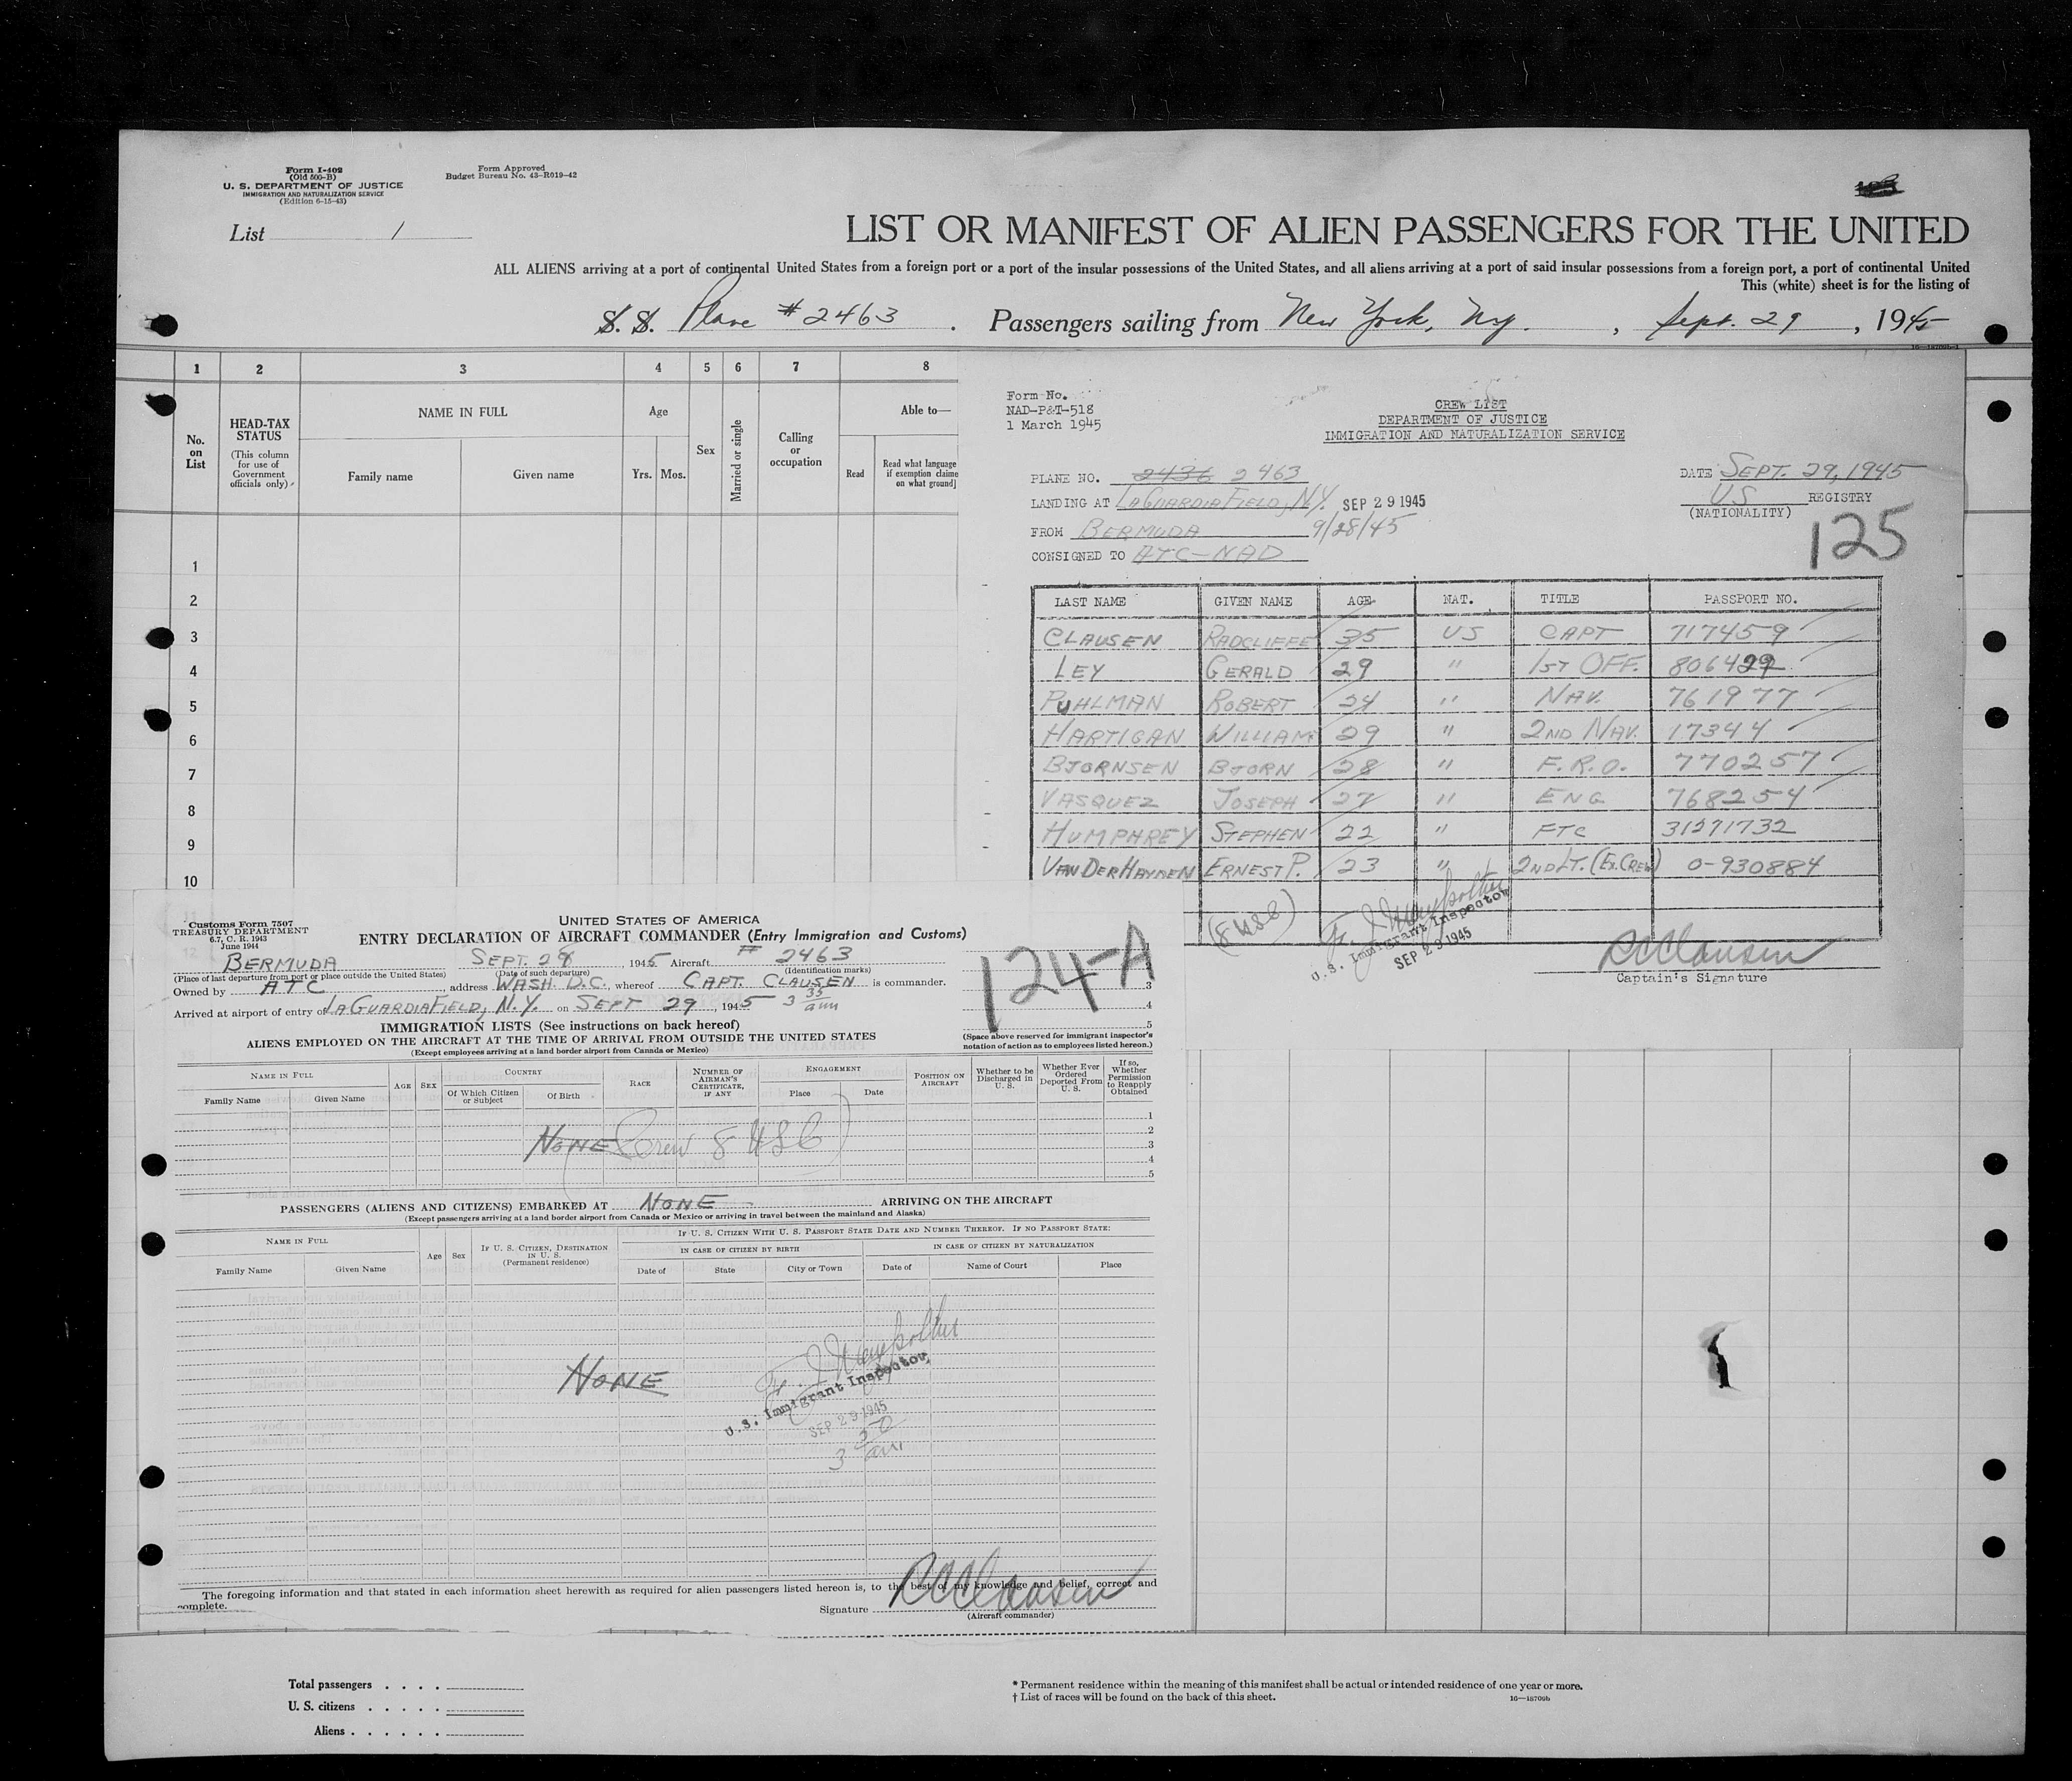 Form I-402
(Old 500-B)
U. S. DEPARTMENT OF JUSTICE
IMMIGRATION AND NATURALIZATION SERVICE
(Edition 6-15-43)
Form Approved
Budget Bureau No. 43-R019-42
List 1
LIST OR MANIFEST OF ALIEN PASSENGERS FOR THE UNITED
ALL ALIENS arriving at a port of continental United States from a foreign port or a port of the insular possessions of the United States, and all aliens arriving at a port of said insular possessions from a foreign port, a port of continental United
This (white) sheet is for the listing of
S. S. Plane # 2463 . Passengers sailing from New York, N.y. , Sept. 29 , 1945
1 2 3 4 5 6 7 8
No. on List
HEAD-TAX STATUS
(This column for use of Government officials only)
NAME IN FULL
Family name Given name
Age
Yrs. Mos.
Sex
Married or single
Calling or occupation
Able to—
Read
Read what language if exemption claime on what ground]
1
2
3
4
5
6
7
8
9
10
Form No.
NAD-P&T-518
1 March 1945
CREW LIST
DEPARTMENT OF JUSTICE
IMMIGRATION AND NATURALIZATION SERVICE
PLANE NO. 2436 2463
DATE SEPT. 29, 1945
LANDING AT LAGUARDIA FIELD, N.Y. SEP 29 1945
US REGISTRY
(NATIONALITY)
FROM BERMUDA 9/28/45
125
CONSIGNED TO ATC-NAD
LAST NAME GIVEN NAME AGE NAT. TITLE PASSPORT NO.
CLAUSEN RADCLIFFE 35 US CAPT 717459
LEY GERALD 29 " 1ST OFF. 806429
PUHLMAN ROBERT 24 " NAV. 761977
HARTIGAN WILLIAM 29 " 2ND NAV. 17344
BJORNSEN BJORN 28 " F.R.O. 770257
VASQUEZ JOSEPH 27 " ENG 768254
HUMPHREY STEPHEN 22 " FTC 31271732
VAN DER HAYDEN ERNEST P. 23 " 2ND LT. (EX. CREW) O-930884
(8 USC)
U.S. Immigrant Inspector
SEP 29 1945
RCClausen
Captain's Signature
Customs Form 7507
TREASURY DEPARTMENT
6.7, C. R. 1943
June 1944
UNITED STATES OF AMERICA
ENTRY DECLARATION OF AIRCRAFT COMMANDER (Entry Immigration and Customs)
BERMUDA SEPT. 28 , 1945 Aircraft # 2463
(Place of last departure from port or place outside the United States) (Date of such departure) (Identification marks)
Owned by ATC , address WASH. D.C., whereof CAPT. CLAUSEN is commander.
Arrived at airport of entry of LAGUARDIA FIELD, N.Y. on SEPT 29 , 1945 3 35 am
124-A
1
2
3
4
5
IMMIGRATION LISTS (See instructions on back hereof)
ALIENS EMPLOYED ON THE AIRCRAFT AT THE TIME OF ARRIVAL FROM OUTSIDE THE UNITED STATES
(Except employees arriving at a land border airport from Canada or Mexico)
(Space above reserved for immigrant inspector's notation of action as to employees listed hereon.)
NAME IN FULL
Family Name Given Name
AGE SEX
COUNTRY
Of Which Citizen or Subject Of Birth
RACE
NUMBER OF AIRMAN'S CERTIFICATE, IF ANY
ENGAGEMENT
Place Date
POSITION ON AIRCRAFT
Whether to be Discharged in U. S.
Whether Ever Ordered Deported From U. S.
If so, Whether Permission to Reapply Obtained
1
2
3
4
5
NONE (Crew 8 USC)
PASSENGERS (ALIENS AND CITIZENS) EMBARKED AT NONE ARRIVING ON THE AIRCRAFT
(Except passengers arriving at a land border airport from Canada or Mexico or arriving in travel between the mainland and Alaska)
NAME IN FULL
Family Name Given Name
Age Sex
IF U. S. CITIZEN, DESTINATION IN U. S.
(Permanent residence)
IF U. S. CITIZEN WITH U. S. PASSPORT STATE DATE AND NUMBER THEREOF. IF NO PASSPORT STATE:
IN CASE OF CITIZEN BY BIRTH IN CASE OF CITIZEN BY NATURALIZATION
Date of State City or Town Date of Name of Court Place
NONE
U.S. Immigrant Inspector
SEP 29 1945
3 50 am
The foregoing information and that stated in each information sheet herewith as required for alien passengers listed hereon is, to the best of my knowledge and belief, correct and
complete.
Signature RCClausen
(Aircraft commander)
Total passengers . . . .
U. S. citizens . . . . .
Aliens . . . . . .
* Permanent residence within the meaning of this manifest shall be actual or intended residence of one year or more.
† List of races will be found on the back of this sheet.
16—18709b